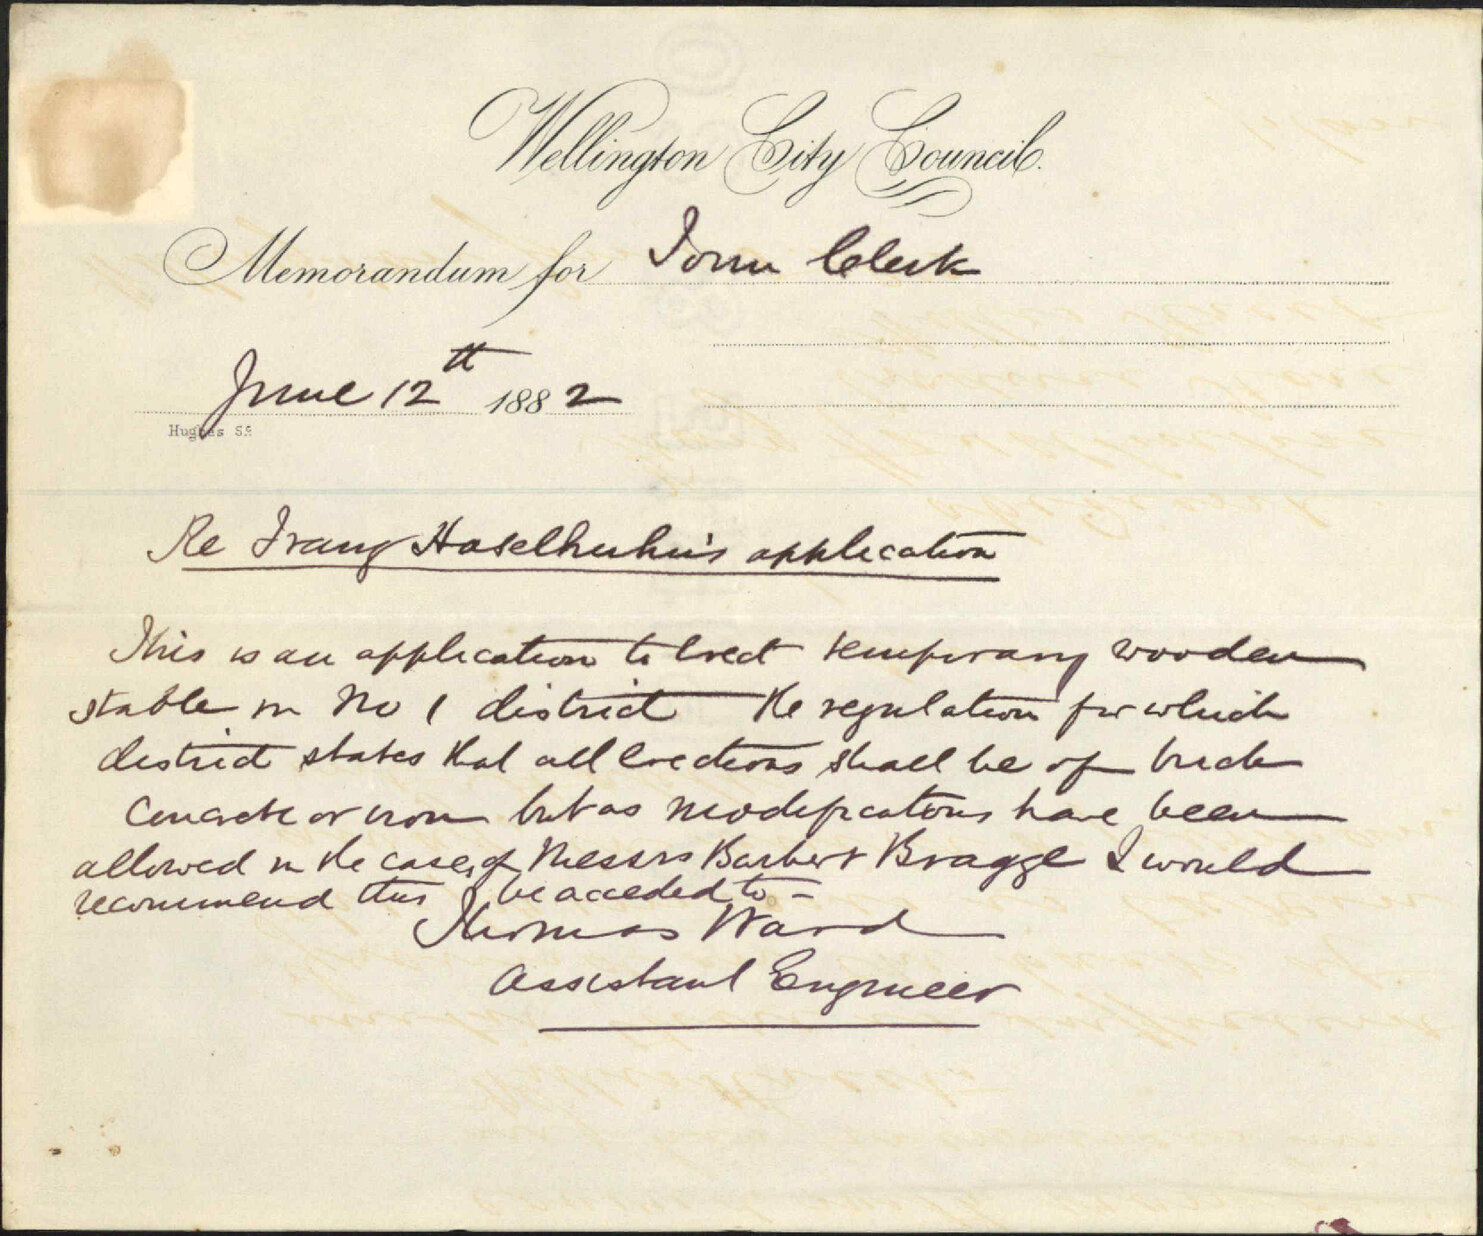 Wellington City Council.
Memorandum for Town Clerk
June 12th 1882
Hughes Sc
Re Franz Haselhuhn's application
This is an application to Erect temporary wooden
stable in No 1 district The regulation for which
district states that all Erections shall be of brick
concrete or iron but as modifications have been
allowed in the cases of Messrs Barber & Bragge I would
recommend this be acceded to =
Thomas Ward
Assistant Engineer